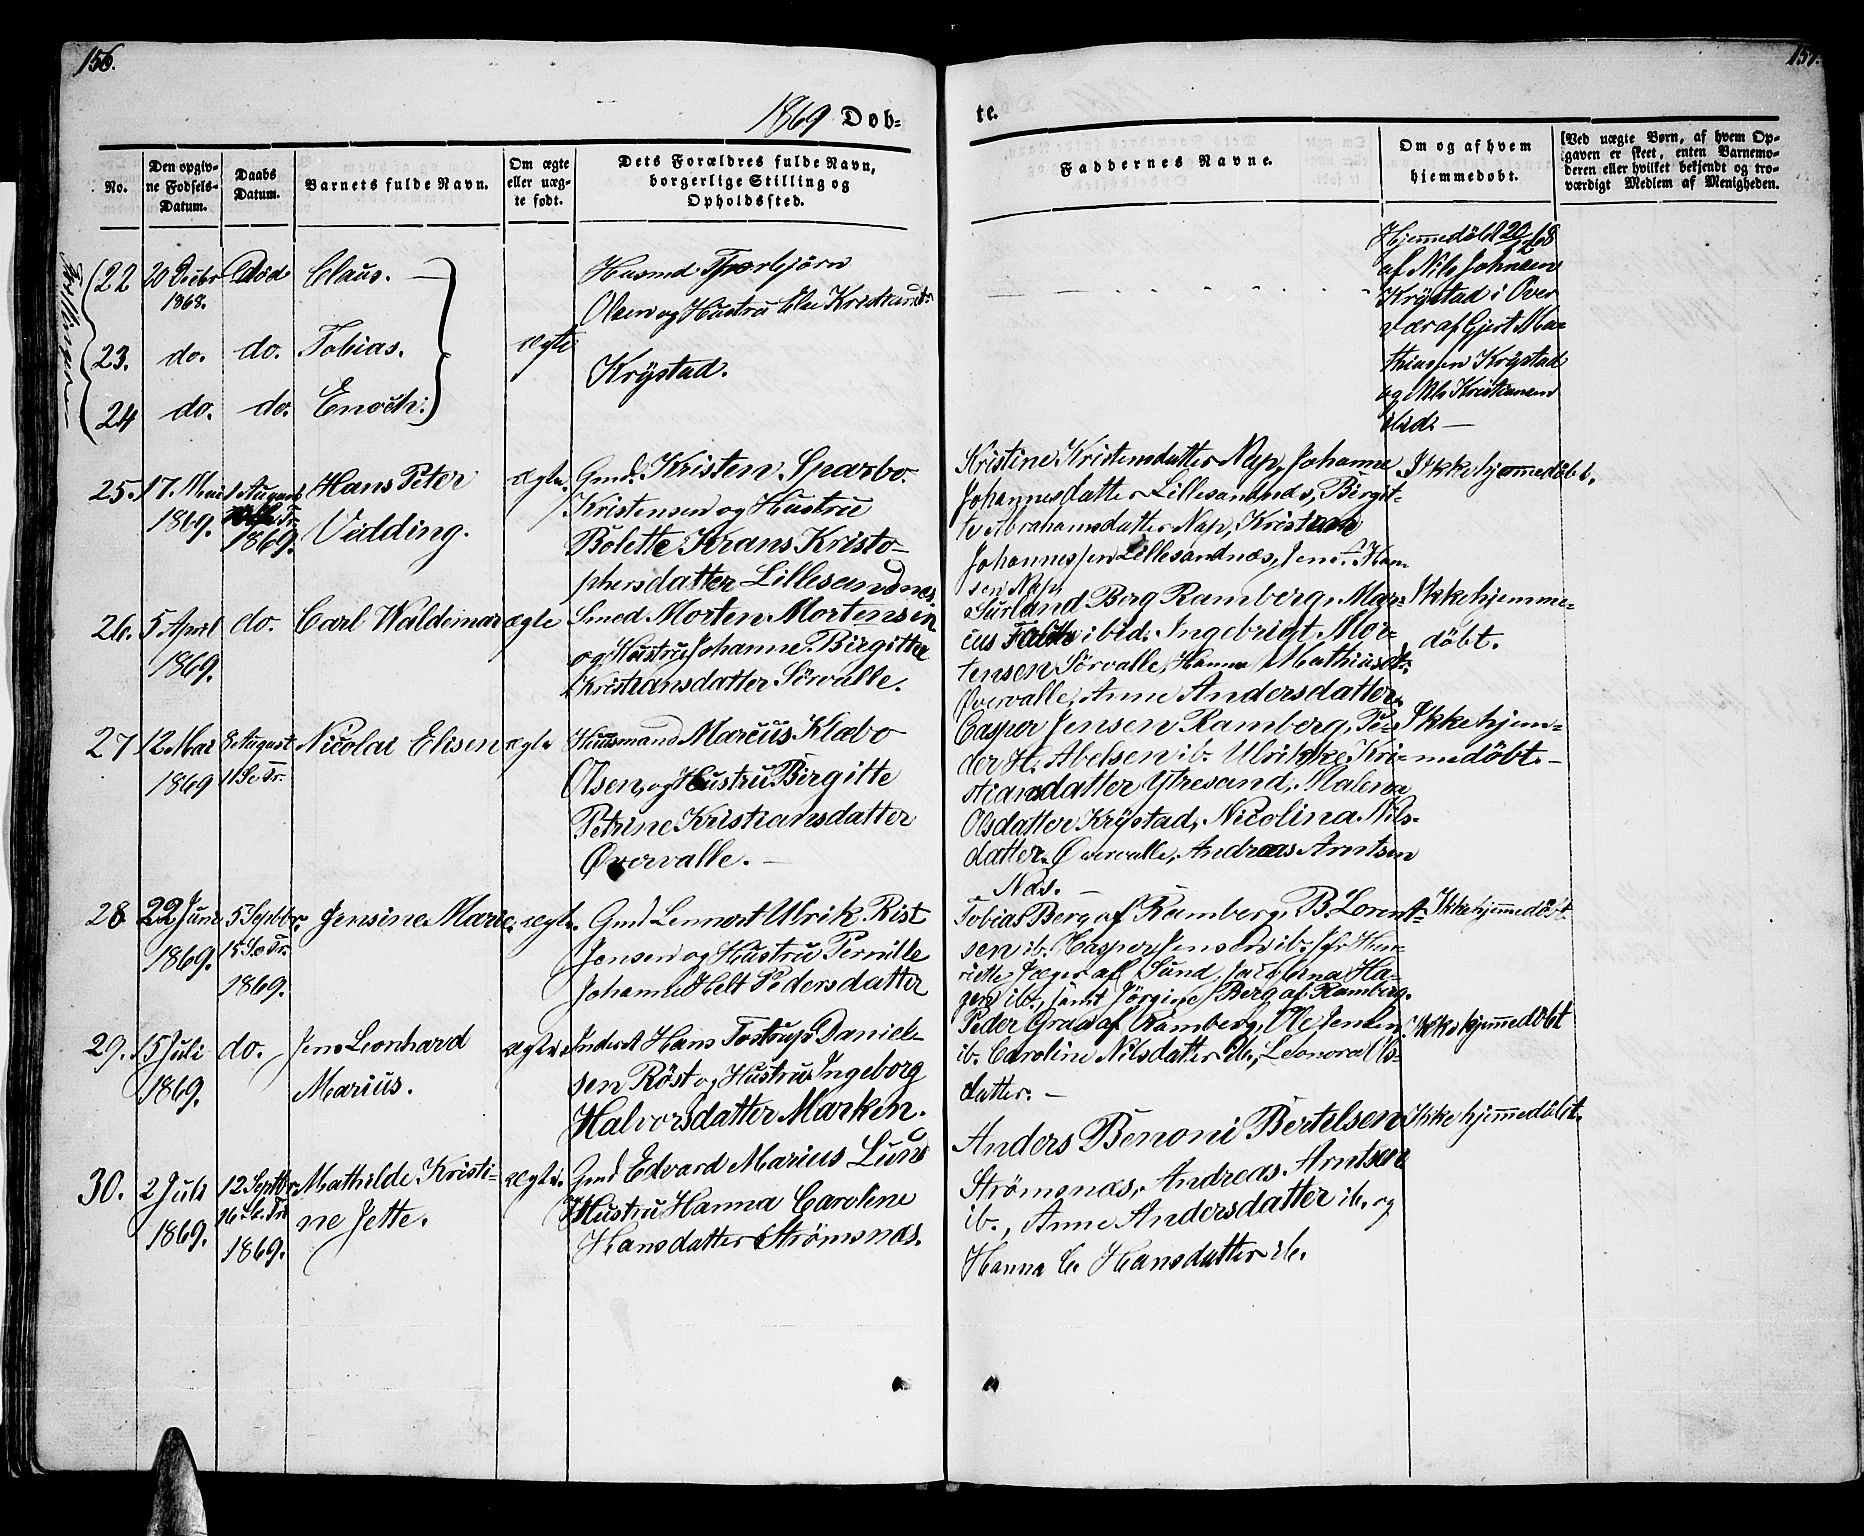 156.
157.
1869 Døb-
te.
No.
Den opgiv-
ne Fødsels-
Datum.
Daabs
Datum.
Barnets fulde Navn.
Om ægte
eller uæg-
te født.
Dets Forældres fulde Navn,
borgerlige Stilling og
Opholdssted.
Faddernes Navne.
Om og af hvem
hjemmedøbt.
Ved uægte Børn, af hvem Op-
gaven er skeet, enten Barnemo-
deren eller hvilket bekjendt og tro-
værdigt Medlem af Menigheden.
Trillinger
22
20 Decbr
1868.
Død
Claus.
23.
do.
do.
Tobias.
24
do.
do.
Enoch.
ægte
Husmd. Thorbjørn
Olsen og Hustru Else Kristiansdr
Krÿstad.
Hjemmedøbt 20/12 68
af Nils Johnsen
Krÿstad i Over
vær af Gjert Ma-
thiassen Krÿstad
og Nils Kristiansen
ibid.
25.
17. Mai
1869.
1 August
1869.
Hans Peter
Vidding.
ægte.
Gmd. Kristen Sparbo
Kristensen og Hustru
Bolette Krans Kristo-
phersdatter Lillesandnæs.
Kristine Kristensdatter Nap, Johanne
Johannesdatter Lillesandnæs, Birgit-
te Abrahamsdatter Nap, Kristian
Johannessen Lillesandnæs, Jens Han-
sen Nap.
Ikke hjemmedøbt.
26.
5 April
1869.
do.
Carl Waldemar
ægte
Smed Morten Mortensen
og Hustru Johanne Birgitte
Kristiansdatter Sörvalle.
Berg Ramberg, Mar-
cus Falch ibid. Ingebrigt Mor-
tensen Sörvalle, Hanna Mathiasdr.
Øvervalle, Anne Andersdatter.
Ikke hjemme-
döbt.
27
12 Mai
1869
8 August
11 S. e. Tr.
Nicolai Elisen
ægte
Huusmand Marcus Klæbo
Olsen, og Hustru Birgitte
Petrine Kristiansdatter
Øvervalle.
Casper Jensen Ramberg, Pe-
der H. Abelsen ib. Ulrikke Kri-
stiansdatter Ytresand, Malena
Olsdatter Krÿstad, Nicolina Nils-
datter Øvervalle, Andreas Arntsen
Næs.
Ikke hjem-
medöbt.
28
22 Juni
1869.
5 Septbr.
15 S. e. Tr.
1869.
Jensine Marie
ægte.
Gmd Lennert Ulrik Rist
Jensen og Hustru Pernille
Johanne Helt Pedersdatter
Tobias Berg af Ramberg, B. Lorent-
sen ib. Casper Jensen ib. Jfr Hen-
riette Jæger af Sund, Jacobina Ha-
gen ib., samt Jörgine Berg af Ramberg.
Ikke hjemmedöbt
29.
15 Juli
1869.
do.
Jens Leonhard
Marius.
ægte
Inderst Hans Tostrup Daniel-
sen Röst og Hustru Ingeborg
Halvorsdatter Marken.
Peder Grav af Ramberg, Ole Jensen
ib. Caroline Nilsdatter ib., Leonora Ols-
datter.
Ikke hjemmedöbt
30.
2 Juli
1869.
12 Septbr.
16 S. e. Tr
1869.
Mathilde Kristi-
ne Jette.
ægte.
Gmd Edvard Marius Lund
Hustru Hanna Caroline
Hansdatter Strømsnæs.
Anders Benoni Bertelsen
Strømsnæs, Andreas Arntsen
ib., Anne Andersdatter ib. og
Hanna C. Hansdatter ib.
Ikke hjemmedöbt.